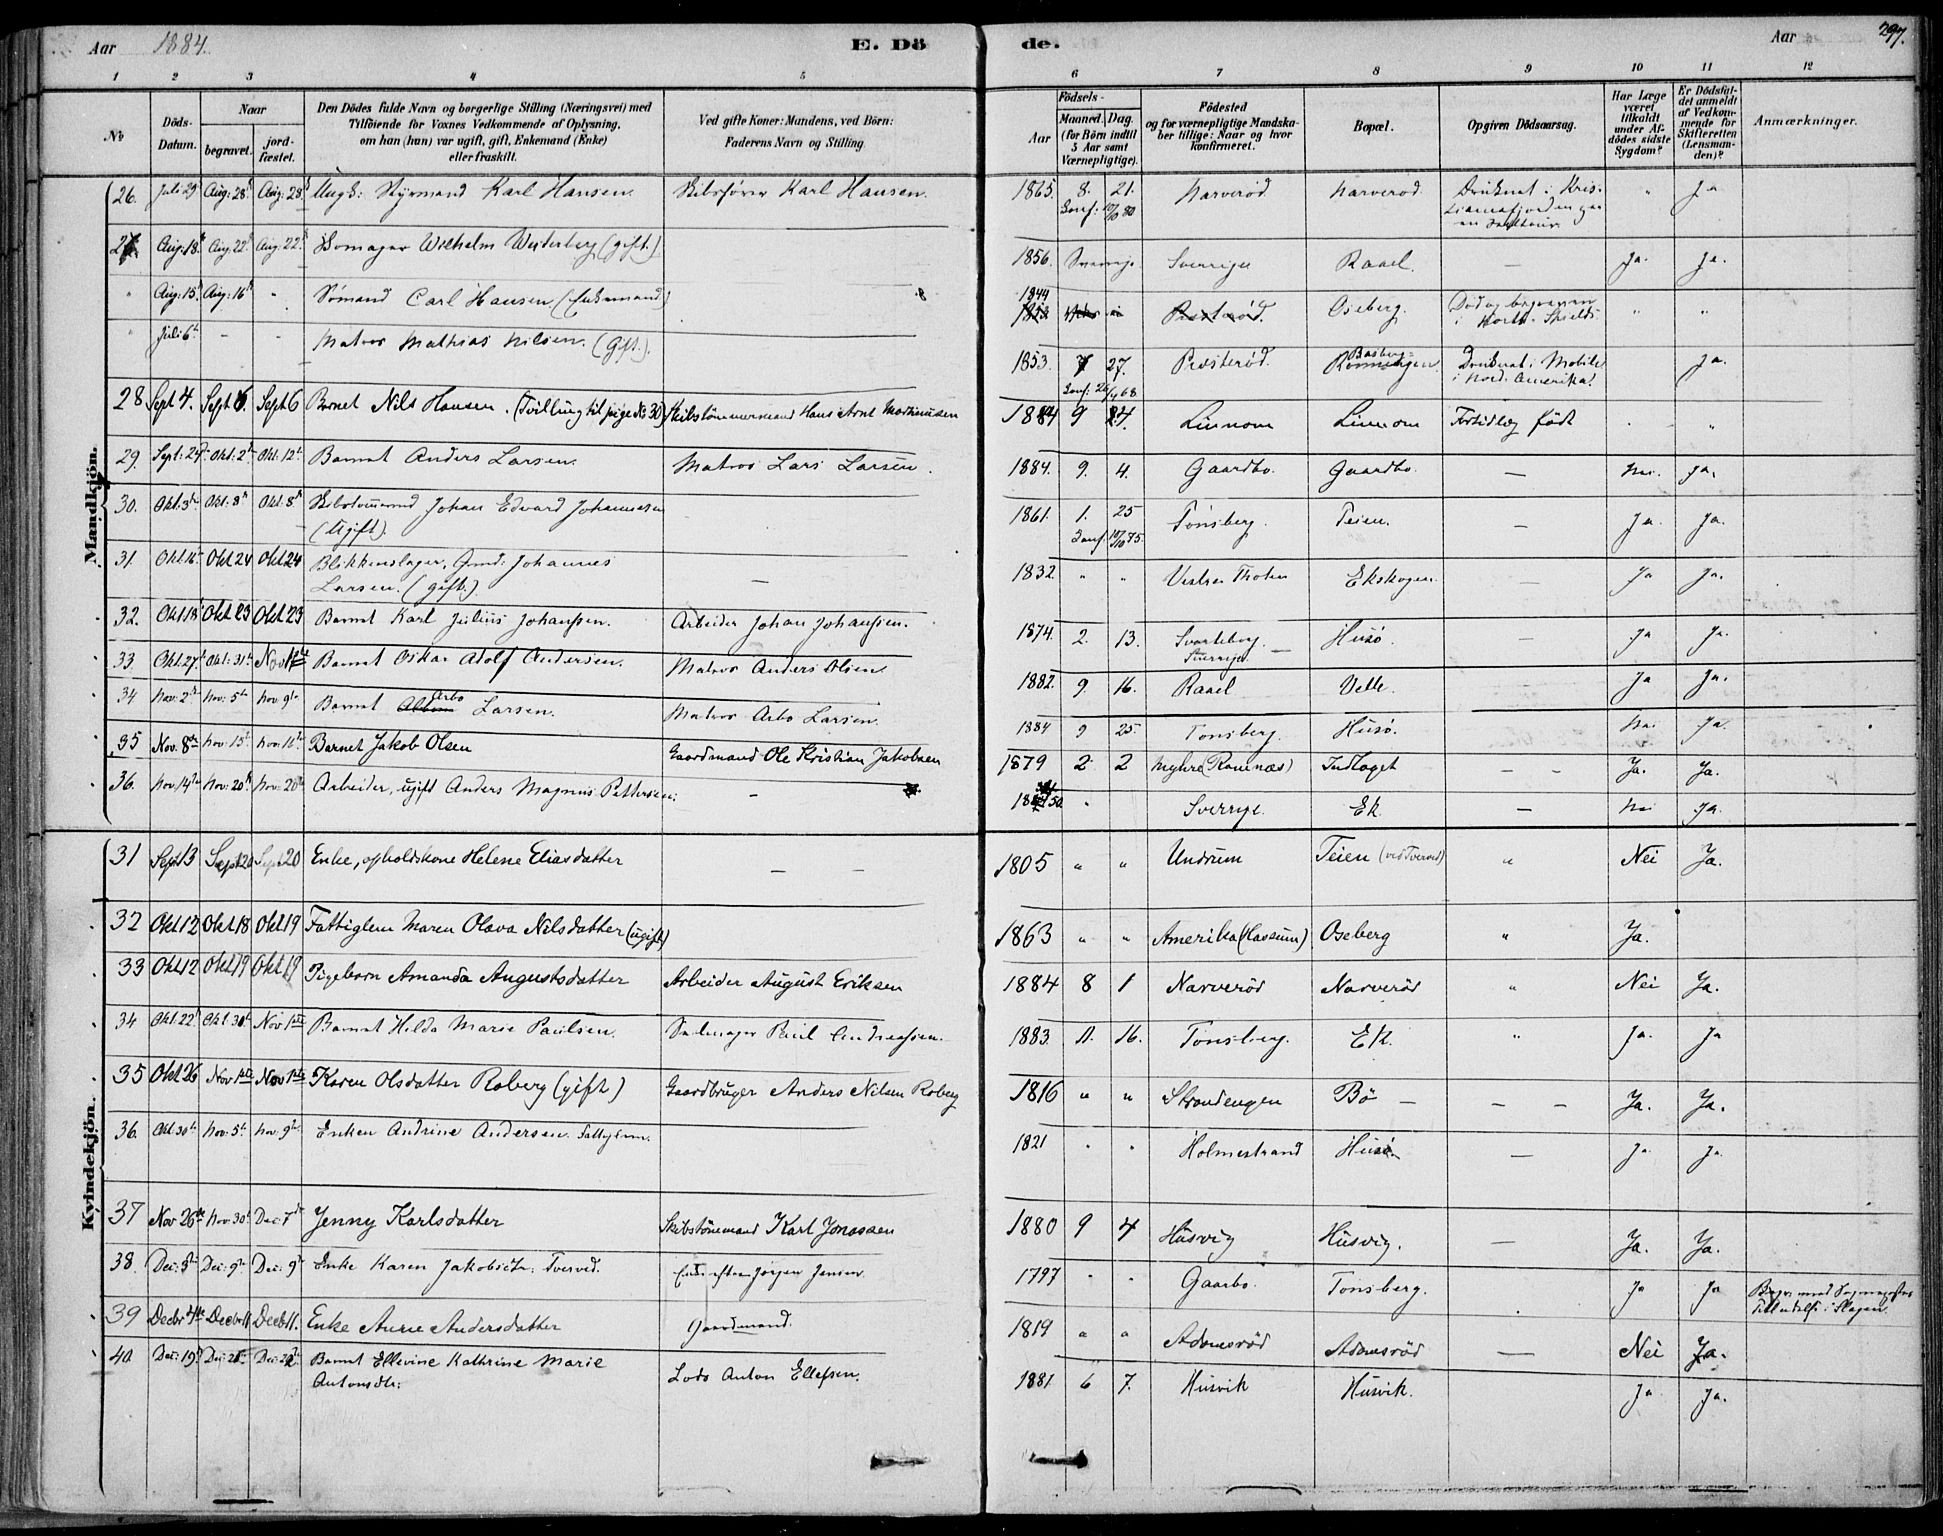 Aar 1884. E. Dö
de. Aar 297.
1 2 3 4 5
6 7 8 9 10 11 12
No
Döds-Datum.
Naar
begravet.
jord-fæstet.
Den Dödes fulde Navn og borgerlige Stilling (Næringsvei) med
Tilföiende for Voxnes Vedkommende af Oplysning,
om han (hun) var ugift, gift, Enkemand (Enke)
eller fraskilt.
Ved gifte Koner: Mandens, ved Börn:
Faderens Navn og Stilling.
Födsels-
Aar
Maaned. Dag.
(for Börn indtil
5 Aar samt
Værnepligtige).
Födested
og for værnepligtige Mandska-
ber tillige: Naar og hvor
konfirmeret.
Bopæl.
Opgiven Dödsaarsag.
Har Læge
været
tilkaldt
under Af-
dödes sidste
Sygdom?
Er Dödsfal-
det anmeldt
af Vedkom-
mende for
Skifteretten
(Lensman-
den)?
Anmærkninger.
Mandkjön.
26. Juli 29 Aug: 28 Aug: 28 Ungk: Styrmand Karl Hansen. Skibsfører Karl Hansen. 1865. 8. 21. Narverød Narverød Druknet i Kris- " Ja
Conf: 10/10 80 tianiafjorden paa
en
27. Aug: 18 Aug 22 Aug: 22 Skomager Wilhelm Westerberg (gift.) 1856. Sverrige Raael. — Ja. Ja.
" Aug: 15 Aug: 16 " Sømand Carl Hansen (Enkemand) 1844 Oseberg. Død og begraven " "
i North-Shields.
" Juli 6 - - Matros Mathias Nilsen. (gift.) 1853. 7 27. Præsterød. Basberg- Druknet i Mobile Ja.
Conf: i Nord-Amerika.
28 Sept 4. Sept 6. Sept 6 Barnet Nils Hansen. (Tvilling til pige No 30) Skibstømmermand Hans Arnt Mathinusen 1884 9 4. Linnom Linnom Fortidlig født . "
29. Sept: 24 Okt: 2 Okt: 12 Barnet Anders Larsen. Matros Lars Larsen. 1884. 9. 4. Gaardbo. Gaardbo. — Nei. Ja.
30. Okt. 3 Okt: 8 Okt. 8 Skibstømmermd Johan Edvard Johannesen - 1861. 1. 25 Tønsberg. Teien. — Ja. Ja.
(Ugift). Conf: 10/10 75.
31. Okt. 16 Okt 24 Okt 24 Blikkenslager, Gmd: Johannes — 1832. " " Vestre Thoten Ekskogen. — Ja Ja.
Larsen. (gift.)
32. Okt 18 Okt 23 Okt 23 Barnet Karl Julius Johanssen. Arbeider Johan Johanssen. 1874. 2. 13. Svarteborg. Husø. — Ja Ja.
Sverrige.
33 Okt. 27 Okt: 31 Nov 1 Barnet Oskar Adolf Andersen. Matros Anders Olsen. 1882. 9. 16. Raael Velle. Ja Ja.
34 Nov: 2 Nov: 5 Nov 9 Barnet Arbo Larsen. Matros Arbo Larsen. 1884 9 25. Tønsberg. Husø. Nei Ja.
35 Nov. 8de Nov: 15 Nov: 16 Barnet Jakob Olsen Gaardmand Ole Kristian Jakobsen 1879 2 2 Myhre (Ramnæs) Indlaget — — Ja. Ja.
36. Nov: 14 Nov: 20 Nov: 20 Arbeider, ugift Anders Magnus Pettersen: — " Sverrige. Ek. — Nei Ja.
Kvindekjön.
31 Sept 13 Sept 20 Sept 20 Enke, opholdskone Helene Eliasdatter — — 1805 " " Undrum Teien (ved Tverved) " Nei Ja.
32 Okt 12 Okt 18 Okt 19 Fattiglem Maren Olava Nilsdatter (ugift) 1863 " " Amerika Oseberg " Ja.
33 Okt 12 Okt 19 Okt 19 Pigebarn Amanda Augustsdatter Arbeider August Eriksen 1884 8 1 Narverød Narverød " Nei Ja.
34 Okt. 22 Okt. 30 Nov 1ste Barnet Hilda Marie Paulsen. Seilmager Paul Andreassen. 1883. 11. 16. Tønsberg. Ek. " Ja. Ja
35 Okt 26 Nov 1ste Nov 1ste Karen Olsdatter Roberg (gift) Gaardbruger Anders Nilsen Roberg 1816 " " Strandengen Bø — — — Ja. Ja.
36. Okt: 30 Nov: 5 Nov: 9 Enken Andrine Andersen. Fattiglem. 1821 " " Holmestrand Husø. — Ja. Ja.
37 Nov 26de Nov 30 Dec: 7de Jenny Karlsdatter Skibstømmand Karl Jonassen 1880 9 4 Husvig Husvig. — Ja. Ja.
38. Dec: 3 Dec: 9 Dec: 9 Enke Karen Jakobsdtr: Tverved. Enke efter Jørgen Jensen 1797 " " Gaarbo. Tønsberg. Ja Ja Begr. med Sognepræstens
Tilladelse i Slagen.
39 Decbr 4de Decbr 11. Decbr 11. Enke Anne Andersdatter Gaardmand. 1819 " " Adamsrød Adamsrød — Nei Ja.
40. Dec: 19 Dec: Dec: Barnet Ellevine Kathrine Marie Lods Anton Ellefsen. 1881. 6 7. Husvik Husvik. — Ja Ja.
Antonsdtr: